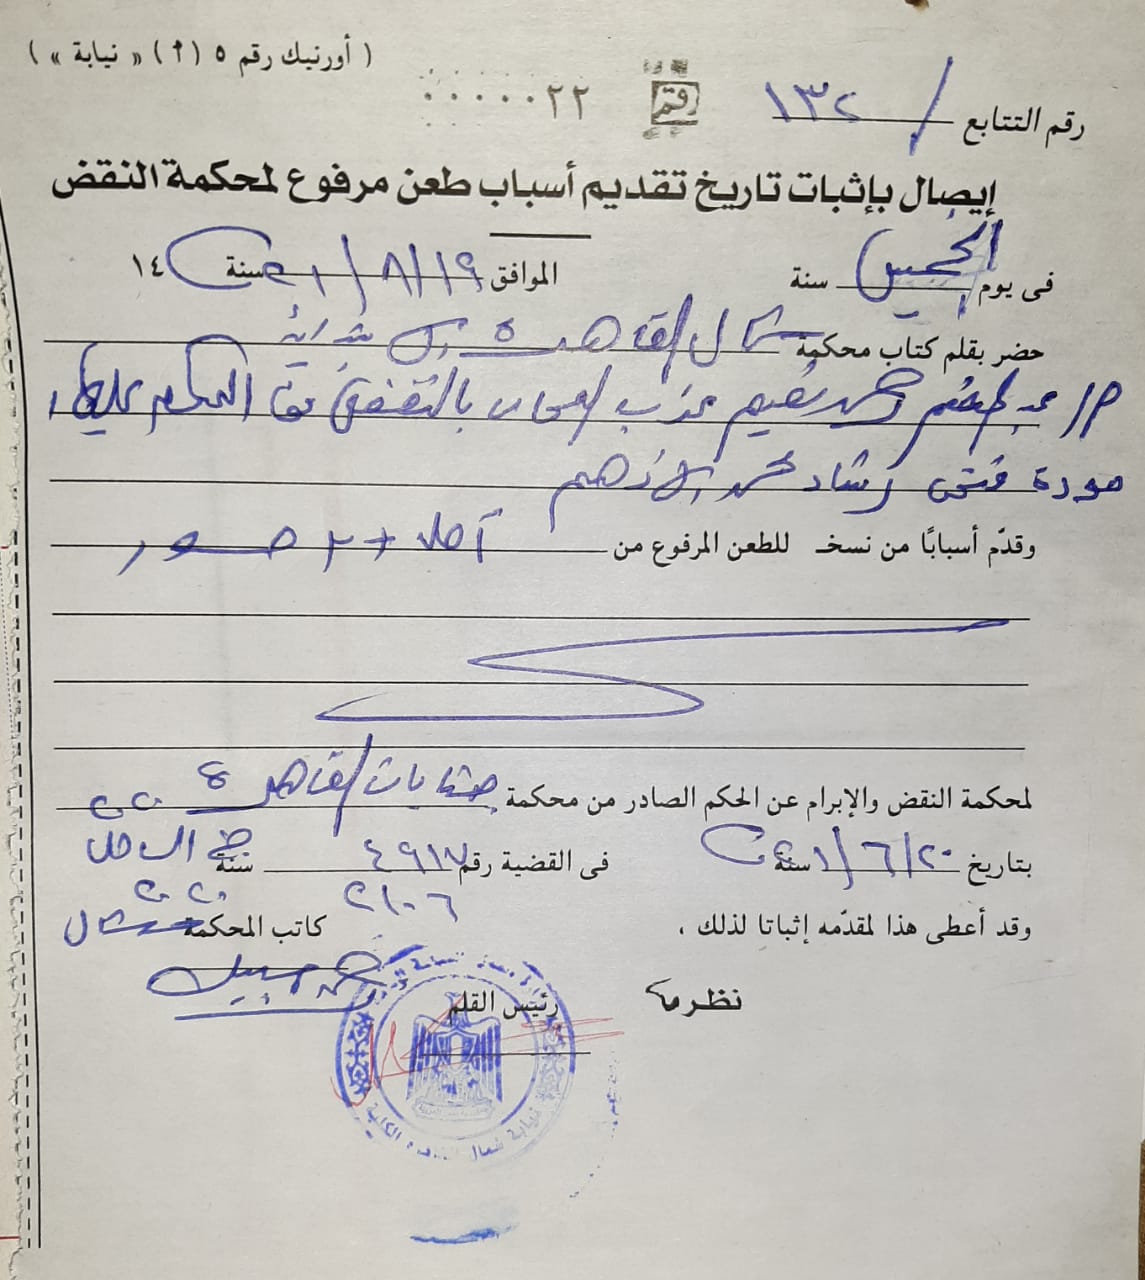 ( أورنيك رقم ٥ (٢) « نيابة » )
رقم التتابع / ١٣٢
رقم ٠٠٠٠٠٢٢
إيصال بإثبات تاريخ تقديم أسباب طعن مرفوع لمحكمة النقض
فى يوم الخميس سنة الموافق ٨/١٩/ ٢٠٢١ سنة ١٤
حضر بقلم كتاب محكمة شمال القاهرة الابتدائية
أ/ عبد المنعم محمد نعيم عزب المحامى بالنقض
فتحى رشاد محمد الادهم
وقدّم أسبابًا من نسخـ للطعن المرفوع من أصل + ٣ صور
لمحكمة النقض والإبرام عن الحكم الصادر من محكمة جنايات القاهرة
بتاريخ ٦/٢٠/ ٢٠٢١ سنة فى القضية رقم ٤٩١٧ سنة ٢٠٢٠ ج الساحل
٢١٠٦ ٢٠٢٠
وقد أعطى هذا لمقدّمه إثباتا لذلك ، كاتب المحكمة شمال
نظر رئيس القلم
نيابة شمال الكلية